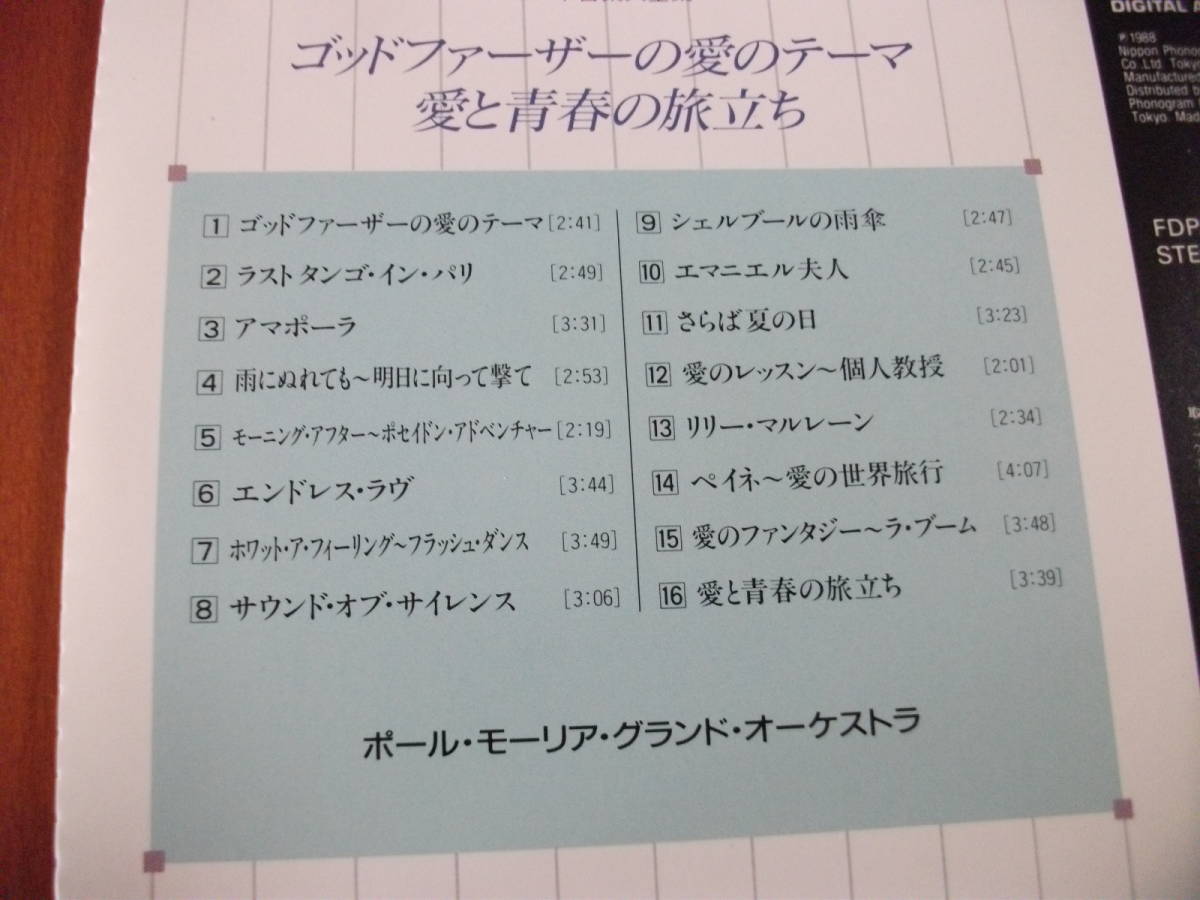 ゴッドファーザーの愛のテーマ
愛と青春の旅立ち
1 ゴッドファーザーの愛のテーマ [2:41]
2 ラストタンゴ・イン・パリ [2:49]
3 アマポーラ [3:31]
4 雨にぬれても〜明日に向って撃て [2:53]
5 モーニング・アフター〜ポセイドン・アドベンチャー [2:19]
6 エンドレス・ラヴ [3:44]
7 ホワット・ア・フィーリング〜フラッシュ・ダンス [3:49]
8 サウンド・オブ・サイレンス [3:06]
9 シェルブールの雨傘 [2:47]
10 エマニエル夫人 [2:45]
11 さらば夏の日 [3:23]
12 愛のレッスン〜個人教授 [2:01]
13 リリー・マルレーン [2:34]
14 ペイネ〜愛の世界旅行 [4:07]
15 愛のファンタジー〜ラ・ブーム [3:48]
16 愛と青春の旅立ち [3:39]
ポール・モーリア・グランド・オーケストラ
DIGITAL A
℗1988
Nippon Phonog
Co.,Ltd. Tokyo
Manufactured
Distributed by
Phonogram
Tokyo. Mad
FDP
STE